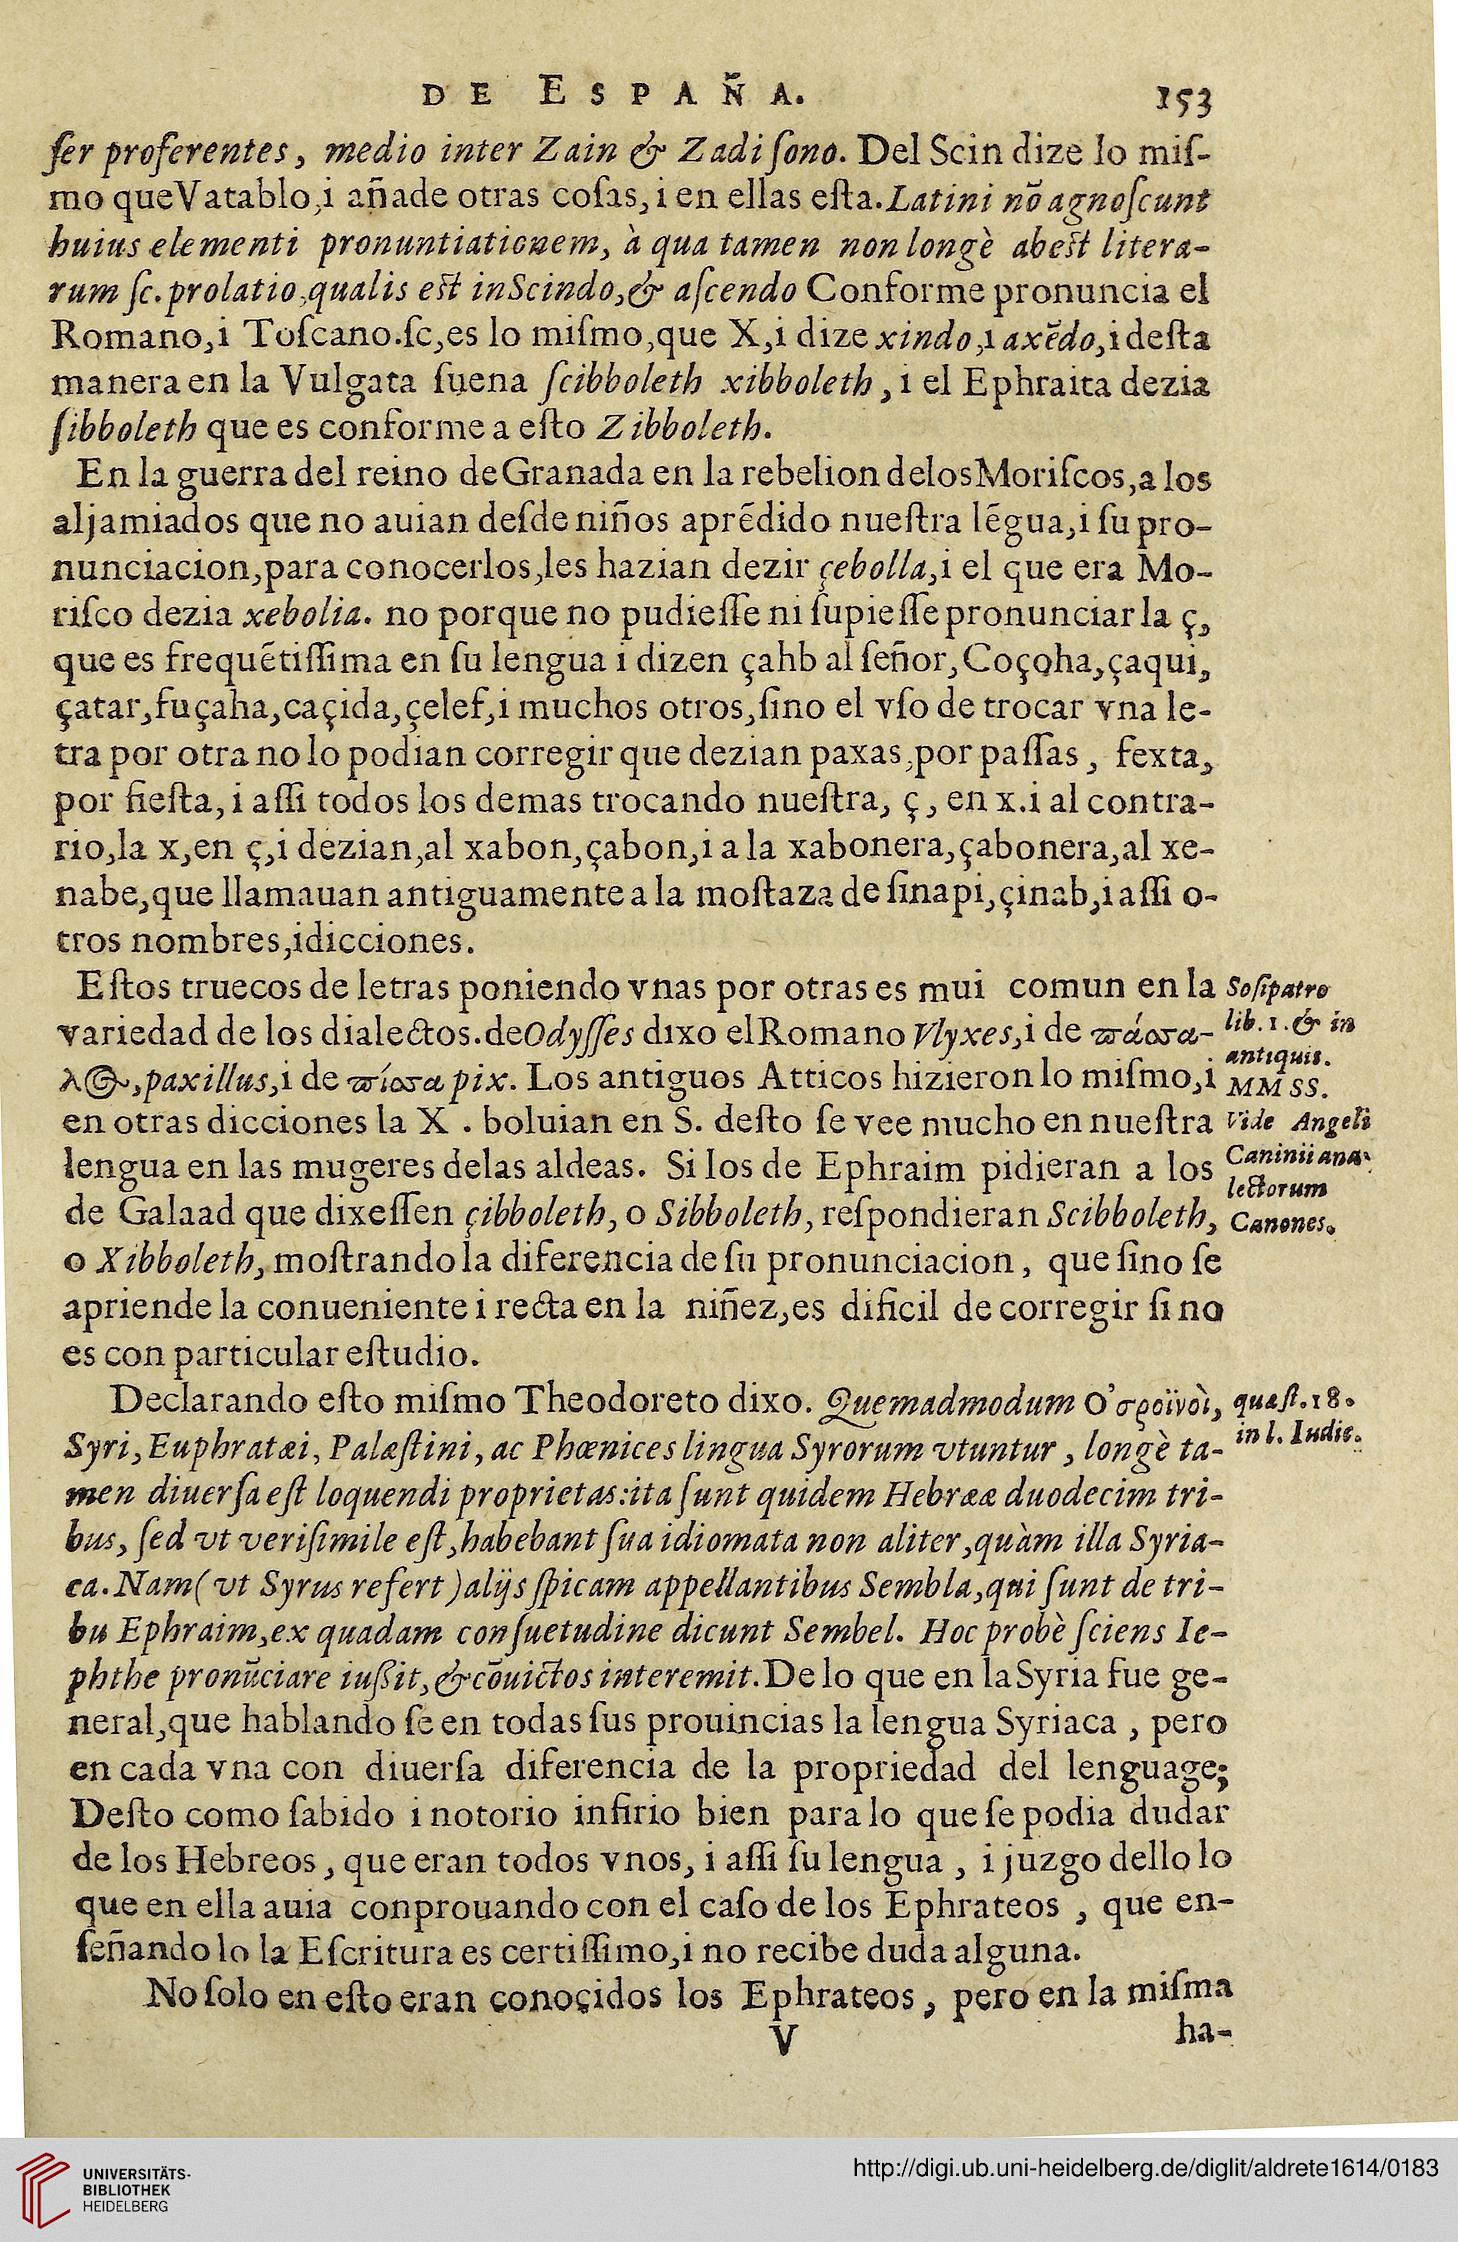 DE ESPAÑA. 153
ſer proferentes, medio inter Zain & Zadi ſono. Del Scin dize lo miſ-
mo que Vatablo, i añade otras coſas, i en ellas eſta. Latini nõ agnoſcunt
huius elementi pronuntiationem, à qua tamen non longè abeſt litera-
rum ſc. prolatio, qualis eſt in Scindo, & aſcendo Conforme pronuncia el
Romano, i Toſcano. ſc, es lo miſmo, que X, i dize xindo, i axẽdo, i deſta
manera en la Vulgata ſuena ſcibboleth xibboleth, i el Ephraita dezia
ſibboleth que es conforme a eſto Zibboleth.
En la guerra del reino de Granada en la rebelion delos Moriſcos, a los
aljamiados que no auian deſde niños aprẽdido nueſtra lẽgua, i ſu pro-
nunciacion, para conocerlos, les hazian dezir çebolla, i el que era Mo-
riſco dezia xebolia. no porque no pudieſſe ni ſupieſſe pronunciar la ç,
que es frequẽtiſſima en ſu lengua i dizen çahb al ſeñor, Coçoha, çaqui,
çatar, fuçaha, caçida, çelef, i muchos otros, ſino el vſo de trocar vna le-
tra por otra no lo podian corregir que dezian paxas, por paſſas, fexta,
por fieſta, i aſſi todos los demas trocando nueſtra, ç, en x. i al contra-
rio, la x, en ç, i dezian, al xabon, çabon, i a la xabonera, çabonera, al xe-
nabe, que llamauan antiguamente a la moſtaza de ſinapi, çinab, i aſſi o-
tros nombres, i dicciones.
Eſtos truecos de letras poniendo vnas por otras es mui comun en la
variedad de los dialectos. de Odyſſes dixo el Romano Vlyxes, i de πάσσα-
λος, paxillus, i de πίσσα pix. Los antiguos Atticos hizieron lo miſmo, i
en otras dicciones la X . boluian en S. deſto ſe vee mucho en nueſtra
lengua en las mugeres delas aldeas. Si los de Ephraim pidieran a los
de Galaad que dixeſſen çibboleth, o Sibboleth, reſpondieran Scibboleth,
o Xibboleth, moſtrando la diferencia de ſu pronunciacion, que ſino ſe
apriende la conueniente i recta en la niñez, es dificil de corregir ſi no
es con particular eſtudio.
Soſipatro
lib. 1. & in
antiquis.
MMSS.
Vide Angeli
Caninii ana-
lectorum
Canones.
Declarando eſto miſmo Theodoreto dixo. Quemadmodum Ο᾽σροϊνοὶ,
Syri, Euphratæi, Palæſtini, ac Phœnices lingua Syrorum vtuntur, longè ta-
men diuerſa eſt loquendi proprietas: ita ſunt quidem Hebrææ duodecim tri-
bus, ſed vt veriſimile eſt, habebant ſua idiomata non aliter, quàm illa Syria-
ca. Nam (vt Syrus refert) alijs ſpicam appellantibus Sembla, qui ſunt de tri-
bu Ephraim, ex quadam conſuetudine dicunt Sembel. Hoc probè ſciens Ie-
phthe pronũciare iuſsit, & cõuictos interemit. De lo que en la Syria fue ge-
neral, que hablandoſe en todas ſus prouincias la lengua Syriaca, pero
en cada vna con diuerſa diferencia de la propriedad del lenguage;
Deſto como ſabido i notorio infirio bien para lo que ſe podia dudar
de los Hebreos, que eran todos vnos, i aſſi ſu lengua, i juzgo dello lo
que en ella auia conprouando con el caſo de los Ephrateos, que en-
ſeñandolo la Eſcritura es certiſſimo, i no recibe duda alguna.
quæſt. 18.
in l. Iudic.
No ſolo en eſto eran conoçidos los Ephrateos, pero en la miſma
V ha-
UNIVERSITÄTS-
BIBLIOTHEK
HEIDELBERG
http://digi.ub.uni-heidelberg.de/diglit/aldrete1614/0183